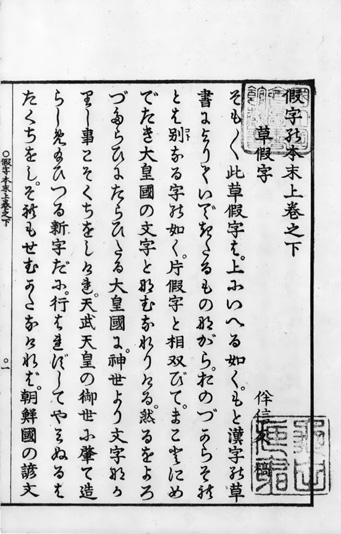 假字乃本末上卷之下
草假字
伴信友 稿
そも〱此草假字は。上にいへる如く。もと漢字の草
書によりていできたるものながら。おのづからそれ
とは別なる字の如く。片假字と相双びて。まことにめ
でたき大皇國の文字となむなれりける。然るをよろ
づたらひにたらひたる大皇國に。神世より文字なか
りし事こそくちをしけれ。天武天皇の御世に肇て造
らしめ給ひつる新字だに。行はれずしてやみぬるは
たくちをし。それもせむかたなければ。朝鮮國の諺文
○假字本末上卷之下
○一